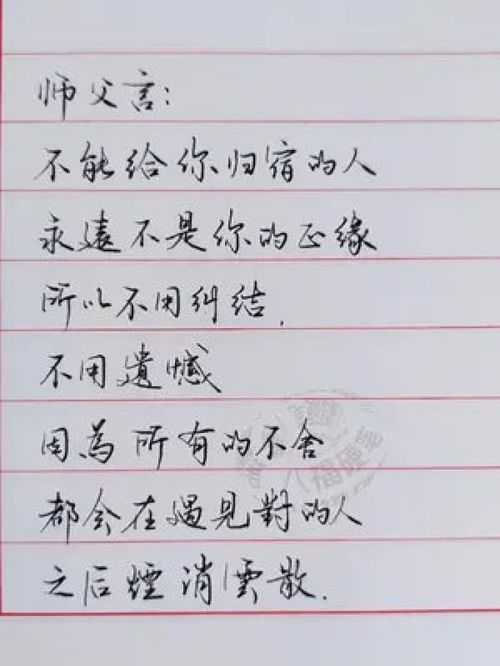 师父言：
不能给你归宿的人
永遠不是你的正缘
所以不用纠结，
不用遺憾
因為所有的不舍
都会在遇见對的人
之后煙消雲散．